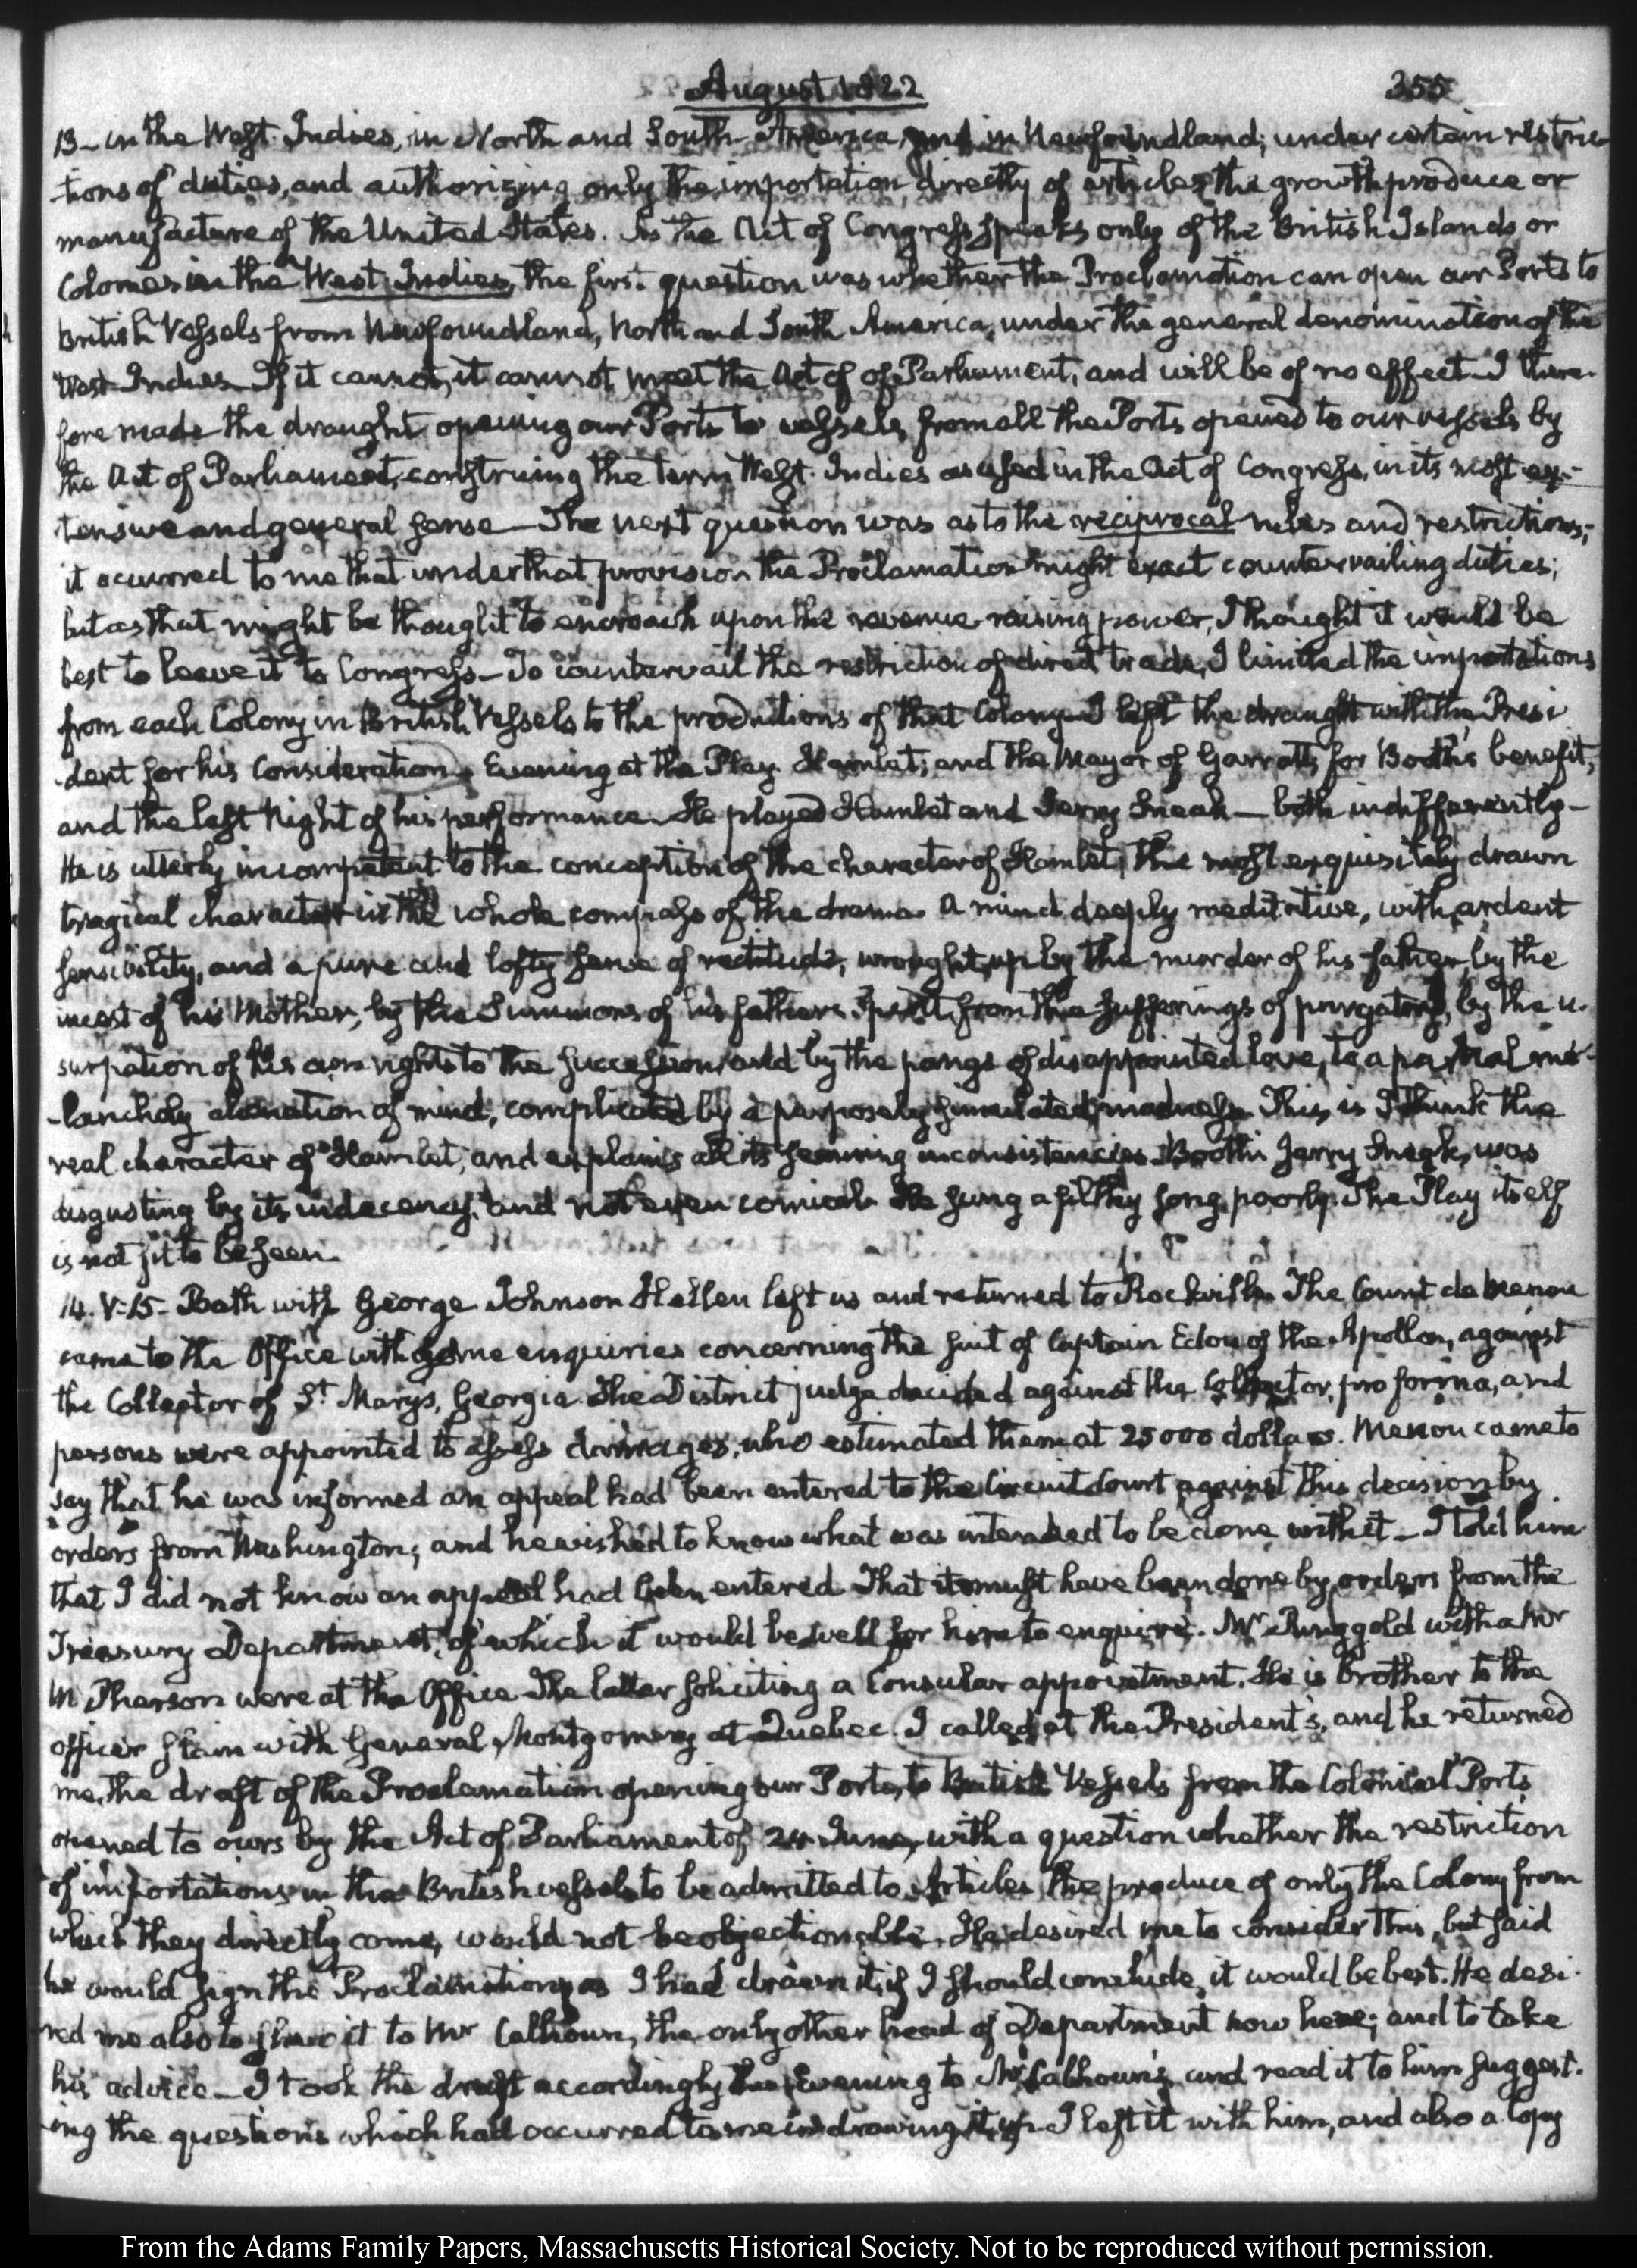 August 1822 355
13- in the West-Indies, in North and South America, and in Newfoundland; under certain restric-
tions of duties, and authorizing only the importation directly of articles, the growth produce or
manufacture of the United States. As the Act of Congress speaks only of the British Islands or
Colonies in the West-Indies, the first question was whether the Proclamation can open our Ports to
British Vessels from Newfoundland, North and South America, under the general denomination of the
West-Indies. If it cannot, it cannot meet the Act of of Parliament, and will be of no effect. I there-
fore made the draught opening our Ports to vessels from all the Ports opened to our vessels by
the Act of Parliament, construing the term West-Indies as used in the Act of Congress, in its most ex-
tensive and general sense— The next question was as to the reciprocal rules and restrictions;
it occurred to me that under that provision the Proclamation might exact countervailing duties;
but as that might be thought to encroach upon the revenue raising power, I thought it would be
best to leave it to Congress— To countervail the restriction of direct trade, I limited the importations
from each Colony in British Vessels to the productions of that Colony— I left the draught with the Presi
-dent for his consideration. Evening at the Play. Hamlet; and the Mayor of Garratt, for Booth's benefit,
and the last Night of his performance. He played Hamlet and Jerry Sneak— both indifferently—
He is utterly incompetent to the conception of the character of Hamlet, the most exquisitely drawn
tragical character in the whole compass of the drama. A mind deeply meditative, with ardent
sensibility, and a pure and lofty sense of rectitude, wrought up by the murder of his father, by the
incest of his Mother, by the Summons of his fathers Spirit, from the sufferings of purgatory, by the u-
surpation of his own rights to the succession, and by the pangs of disappointed love, to a partial me-
-lancholy alienation of mind, complicated by a purposely simulated madness. This, is I think the
real character of Hamlet, and explains all its seeming inconsistencies. Booth's Jerry Sneak, was
disgusting by its indecency, and not even comical. He sung a filthy song, poorly. The Play itself
is not fit to be seen.
14. V:15- Bath with George. Johnson Hellen left us and returned to Rockville. The Count de Menou
came to the Office with some enquiries concerning the suit of Captain Edou of the Apollon, against
the Collector of St. Marys, Georgia. The District judge decided against the Collector, pro forma, and
persons were appointed to assess damages, who estimated them at 25000 dollars. Menou came to
say that he was informed an appeal had been entered to the Circuit Court against this decision by
orders from Washington; and he wished to know what was intended to be done with it— I told him
that I did not know an appeal had been entered. That it must have been done by orders from the
Treasury Department, of which it would be well for him to enquire. Mr Ringgold with a Mr
McPherson were at the Office. The latter soliciting a Consular appointment. He is brother to the
officer slain with General Montgomery at Quebec. I called at the President's, and he returned
me, the draft of the Proclamation opening our Ports, to British Vessels from the Colonial Ports
opened to ours by the Act of Parliament of 24 June, with a question whether the restriction
of importations in the British vessels to be admitted to Articles the produce of only the Colony from
which they directly come, would not be objectionable. He desired me to consider this, but said
he would sign the Proclamation as I had drawn it, if I should conclude, it would be best. He desi-
red me also to shew it to Mr Calhoun, the only other head of Department now here; and to take
his advice— I took the draft accordingly this Evening to Mr Calhoun's, and read it to him suggest-
ing the questions which had occurred to me in drawing it up. I left it with him, and also a copy
From the Adams Family Papers, Massachusetts Historical Society. Not to be reproduced without permission.